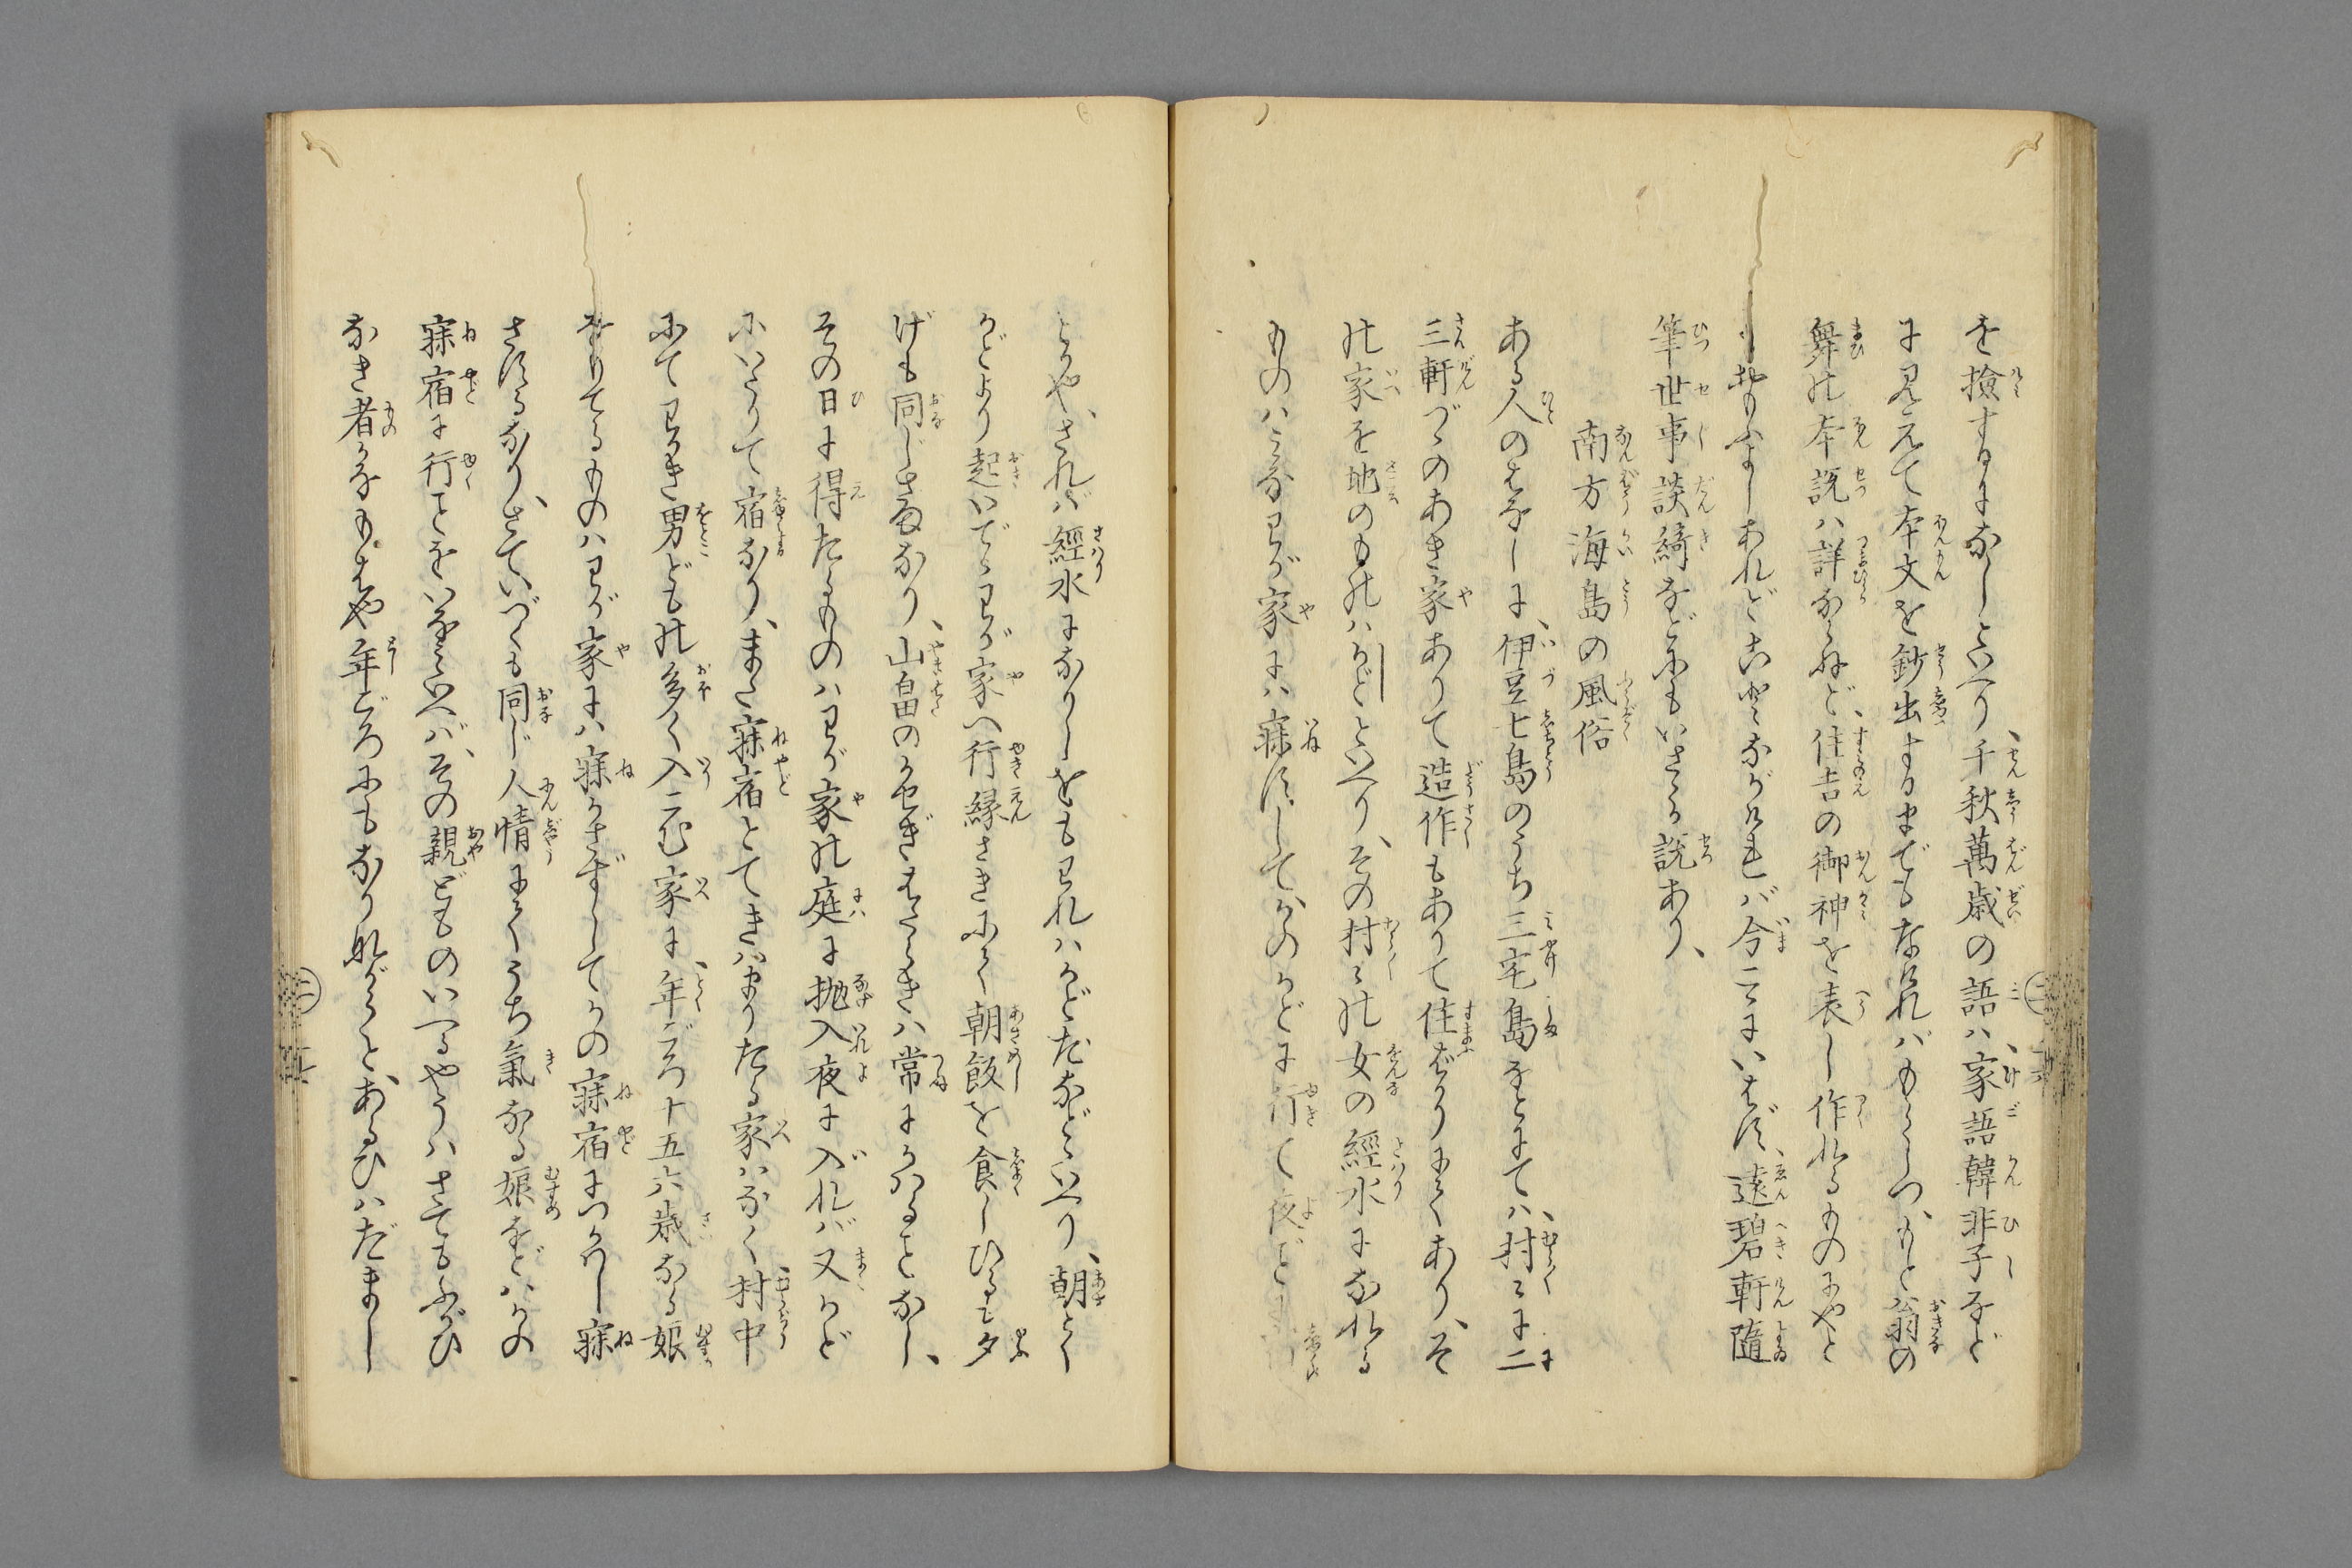 を撿するによしといへり、千秋萬歳の語ハ、家語韓非子など
に見えて本文を鈔出するまでもなけれバもらしつ、もと翁の
舞の本説ハ詳ならねど、住吉の御神を表し作れるものにやと
おもふよしあれどことながけれバ今こゝにいはず、遠碧軒隨
筆世事談綺などにもいさゝか説あり、
南方海島の風俗
ある人のはなしに、伊豆七島のうち三宅島などにてハ、村々に二
三軒づゝのあき家ありて造作もありて住ばかりにてあり、そ
の家を地のものハかどといへり、その村々の女の經水になれる
ものハみなわが家にハ寐ずしてかのかどに行て夜ど
とかや、されバ經水になりしをもわれハかどだなどゝいへり、朝とく
かどより起いでゝわが家へ行縁さきにて朝飯を食しひるも夕
げも同じさまなり、山畠のかせぎはたらきハ常にかハることなし、
その日に得たるものハわが家の庭に抛入夜に入れバ又かど
にいたりて宿なり、また寐宿とてきハまりたる家ハなく村中
にてわかき男どもの多く入こむ家に、年ごろ十五六歳なる娘
をもてるものハわが家にハ寐かさずしてかの寐宿につかハし寐
さするなり、さていづくも同じ人情にてうち氣なる娘などハかの
寐宿に行ことをいなといへバ、その親どものいへるやうハさてもふがひ
なき者かなもはや年ごろにもなりながらと、あるひハだまし